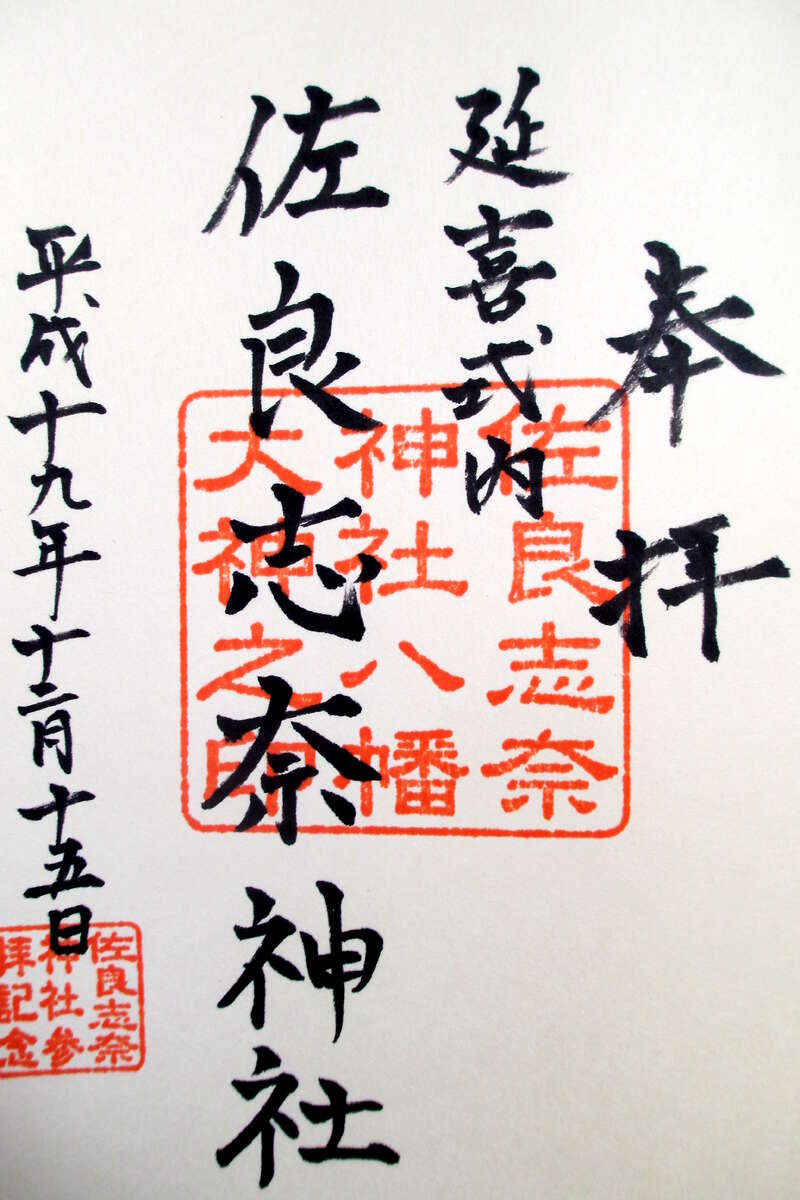 奉拝
延喜式内
佐良志奈神社
平成十九年十二月十五日
佐良志奈
神社八幡
大神之印
佐良志奈
神社参
拝記念